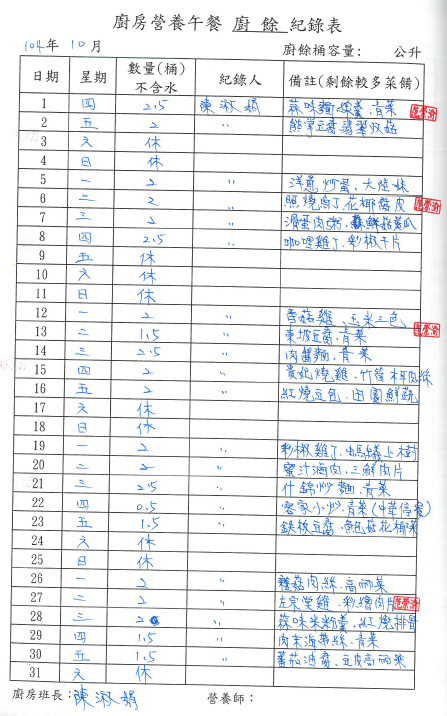 廚房營養午餐 廚 餘 紀錄表
104年 10月 廚餘桶容量： 公升
日期 星期 數量(桶)不含水 紀錄人 備註(剩餘較多菜餚)
1 四 2.5 陳淑娟 蒜味麵線羹、青菜
2 五 2 〃
3 六 休
4 日 休
5 一 2 〃 洋蔥炒蛋、大陸妹
6 二 2 〃 照燒魚丁、花椰菇皮
7 三 2 〃 滑蛋肉粥、鮮菇黃瓜
8 四 2.5 〃 咖哩雞丁、彩椒干片
9 五 休
10 六 休
11 日 休
12 一 2 〃 香菇雞、玉米三色
13 二 1.5 〃 東坡豆腐、青菜
14 三 2.5 〃 肉醬麵、青菜
15 四 2 〃 貴妃燒雞、竹筍木耳肉絲
16 五 2 〃 紅燒豆包、田園鮮蔬
17 六 休
18 日 休
19 一 2 〃 彩椒雞丁、螞蟻上樹
20 二 2 〃 蜜汁滷肉、三鮮肉片
21 三 2.5 〃 什錦炒麵、青菜
22 四 0.5 〃 客家小炒、青菜(中華停餐)
23 五 1.5 〃 鉄板豆腐、鮑菇花椰菜
24 六 休
25 日 休
26 一 2 〃 肉絲、高麗菜
27 二 2 〃 左宗棠雞、彩繪肉片
28 三 2 〃 蒜味米粉羹、紅燒排骨
29 四 1.5 〃 肉末海帶絲、青菜
30 五 1.5 〃 蕃茄油腐、豆皮高麗菜
31 六 休
廚房班長：陳淑娟 營養師：